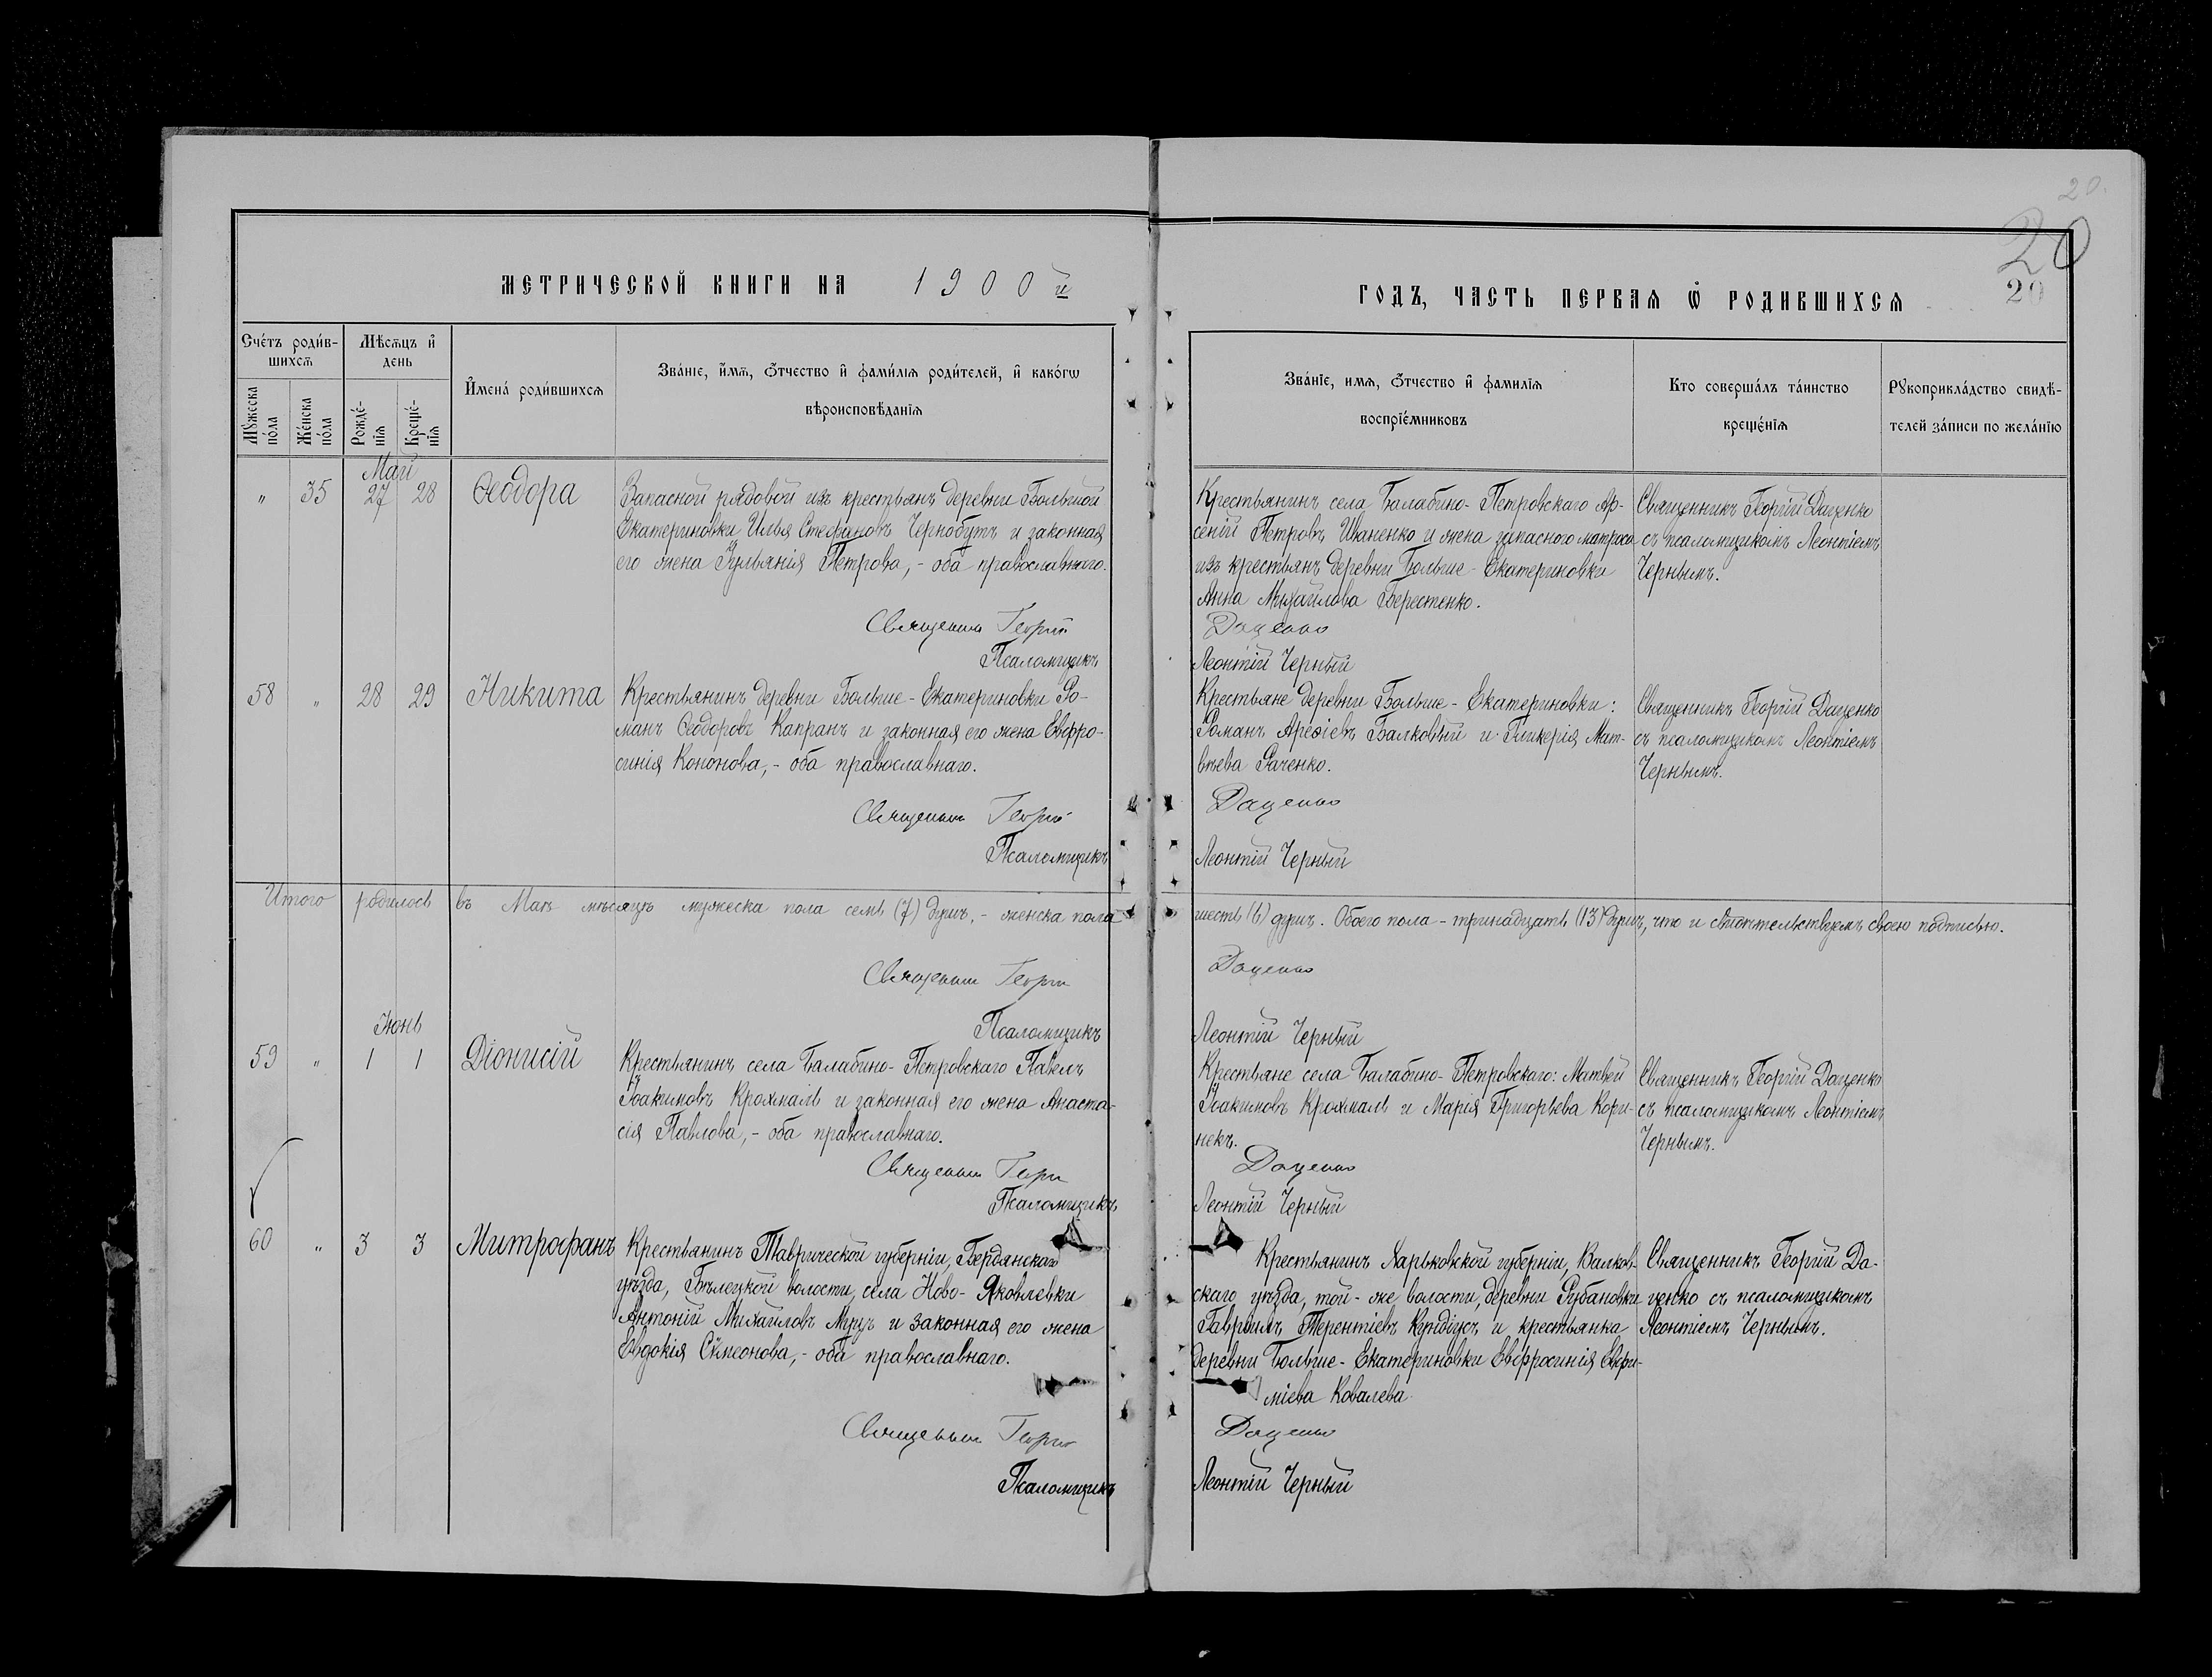 20.
20
20
МЕТРИЧЕСКОЙ КНИГИ НА 1900й
ГОДЪ, ЧАСТЬ ПЕРВАЯ Ѿ РОДИВШИХСЯ
Счетъ родив-
шихся
Мѣсяцъ и
день
Имена родившихся
Званіе, имя, отчество и фамилія родителей, и какогѡ
вѣроисповѣданія
Мужеска
пола
Женска
пола
Рожде-
нія
Креще-
нія
Званіе, имя, отчество и фамилія
воспріемниковъ
Кто совершалъ таинство
крещенія
Рукоприкладство свидѣ-
телей записи по желанію
Май
" 35 27 28 Ѳеодора
Запасной рядовой изъ крестьянъ деревни Большой
Екатериновки Илья Стефановъ Чернобутъ и законная
его жена Іульянія Петрова, - оба православнаго.
Священникъ Георгій
Псаломщикъ
Крестьянинъ села Балабино-Петровскаго Ар-
сеній Петровъ Иваненко и жена запасного матроса
изъ крестьянъ деревни Больше-Екатериновки
Анна Михайлова Берестенко.
Даценко
Леонтій Черный
Священникъ Георгій Даценко
съ псаломщикомъ Леонтіемъ
Чернымъ.
58 " 28 29 Никита
Крестьянинъ деревни Больше-Екатериновки Ро-
манъ Ѳеодоровъ Капранъ и законная его жена Евфро-
синія Кононова, - оба православнаго.
Священникъ Георгій
Псаломщикъ
Крестьяне деревни Больше-Екатериновки:
Романъ Арефіевъ Балковый и Гликерія Мат-
вѣева Раченко.
Даценко
Леонтій Черный
Священникъ Георгій Даценко
съ псаломщикомъ Леонтіемъ
Чернымъ.
Итого родилось въ Маѣ мѣсяцѣ мужеска пола семь (7) душъ, - женска пола
шесть (6) душъ. Обоего пола - тринадцать (13) душъ, что и свидѣтельствуемъ своею подписью.
Священникъ Георгій
Даценко
Псаломщикъ
Леонтій Черный
Іюнь
59 " 1 1 Діонисій
Крестьянинъ села Балабино-Петровскаго Павелъ
Іоакимовъ Крохмаль и законная его жена Анаста-
сія Павлова, - оба православнаго.
Священникъ Георгій
Псаломщикъ
Крестьяне села Балабино-Петровскаго: Матвей
Іоакимовъ Крохмаль и Марія Григорьева Кори-
некъ.
Даценко
Леонтій Черный
Священникъ Георгій Даценко
съ псаломщикомъ Леонтіемъ
Чернымъ.
60 " 3 3 Митрофанъ
Крестьянинъ Таврической губерніи, Бердянскаго
уѣзда, Бѣлецкой волости, села Ново-Яковлевки
Антоній Михайловъ и законная его жена
Евдокія Сѵмеонова, - оба православнаго.
Священникъ Георгій
Псаломщикъ
Крестьянинъ Харьковской губерніи, Валков-
скаго уѣзда, той-же волости, деревни Рубановки
Гавріилъ Терентіевъ и крестьянка
деревни Больше-Екатериновки Евфросинія Евфи-
міева Ковалева
Даценко
Леонтій Черный
Священникъ Георгій Да-
ценко съ псаломщикомъ
Леонтіемъ Чернымъ.